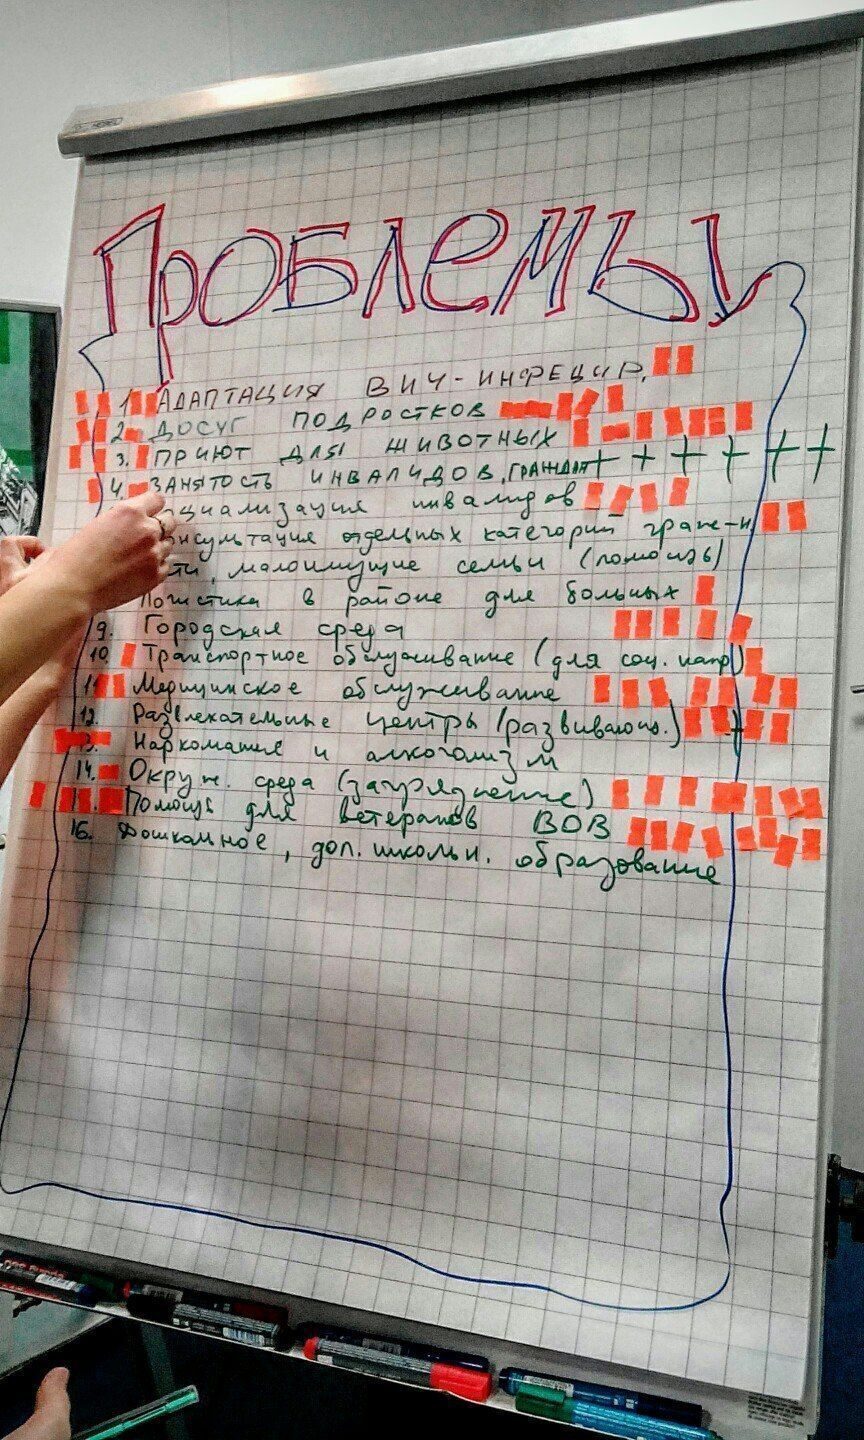 Проблемы
1. Адаптация ВИЧ-инфецир.
2. Досуг подростков
3. Приют для животных
4. Занятость инвалидов, граждан + + + + + +
социализация инвалидов
консультация отдельных категорий граж-н
малоимущие семьи (помощь)
Логистика в районе для больных
9. Городская среда
10. Транспортное обслуживание (для соц. напр)
11. Медицинское обслуживание
12. Развлекательные центры (развивающ.) +
13. Наркомания и алкоголизм
14. Окруж. среда (загрязнение)
Помощь для ветеранов ВОВ
16. Дошкольное, доп. школьн. образование